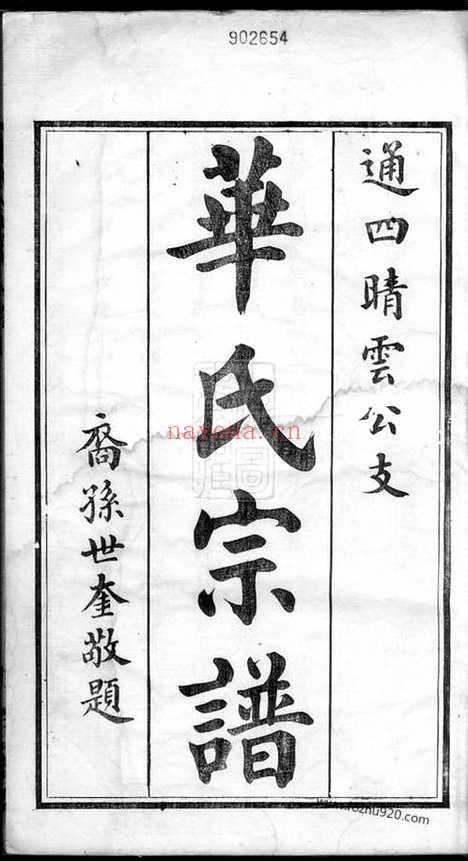 902654
通四晴雲公支
華氏宗譜
裔孫世奎敬題
nayona.cn